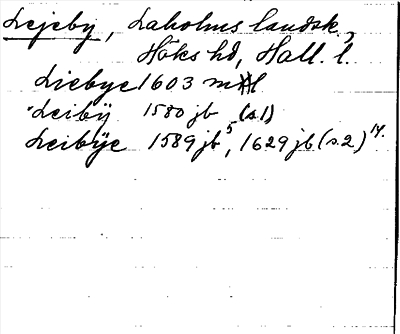 Lejeby, Laholms landsk.,
Höks hd, Hall. l.
Liebye 1603 mtl
Leibÿ 1580 jb (s.1)
Leibÿe 1589 jb⁵, 1629 jb (s.2) 14.